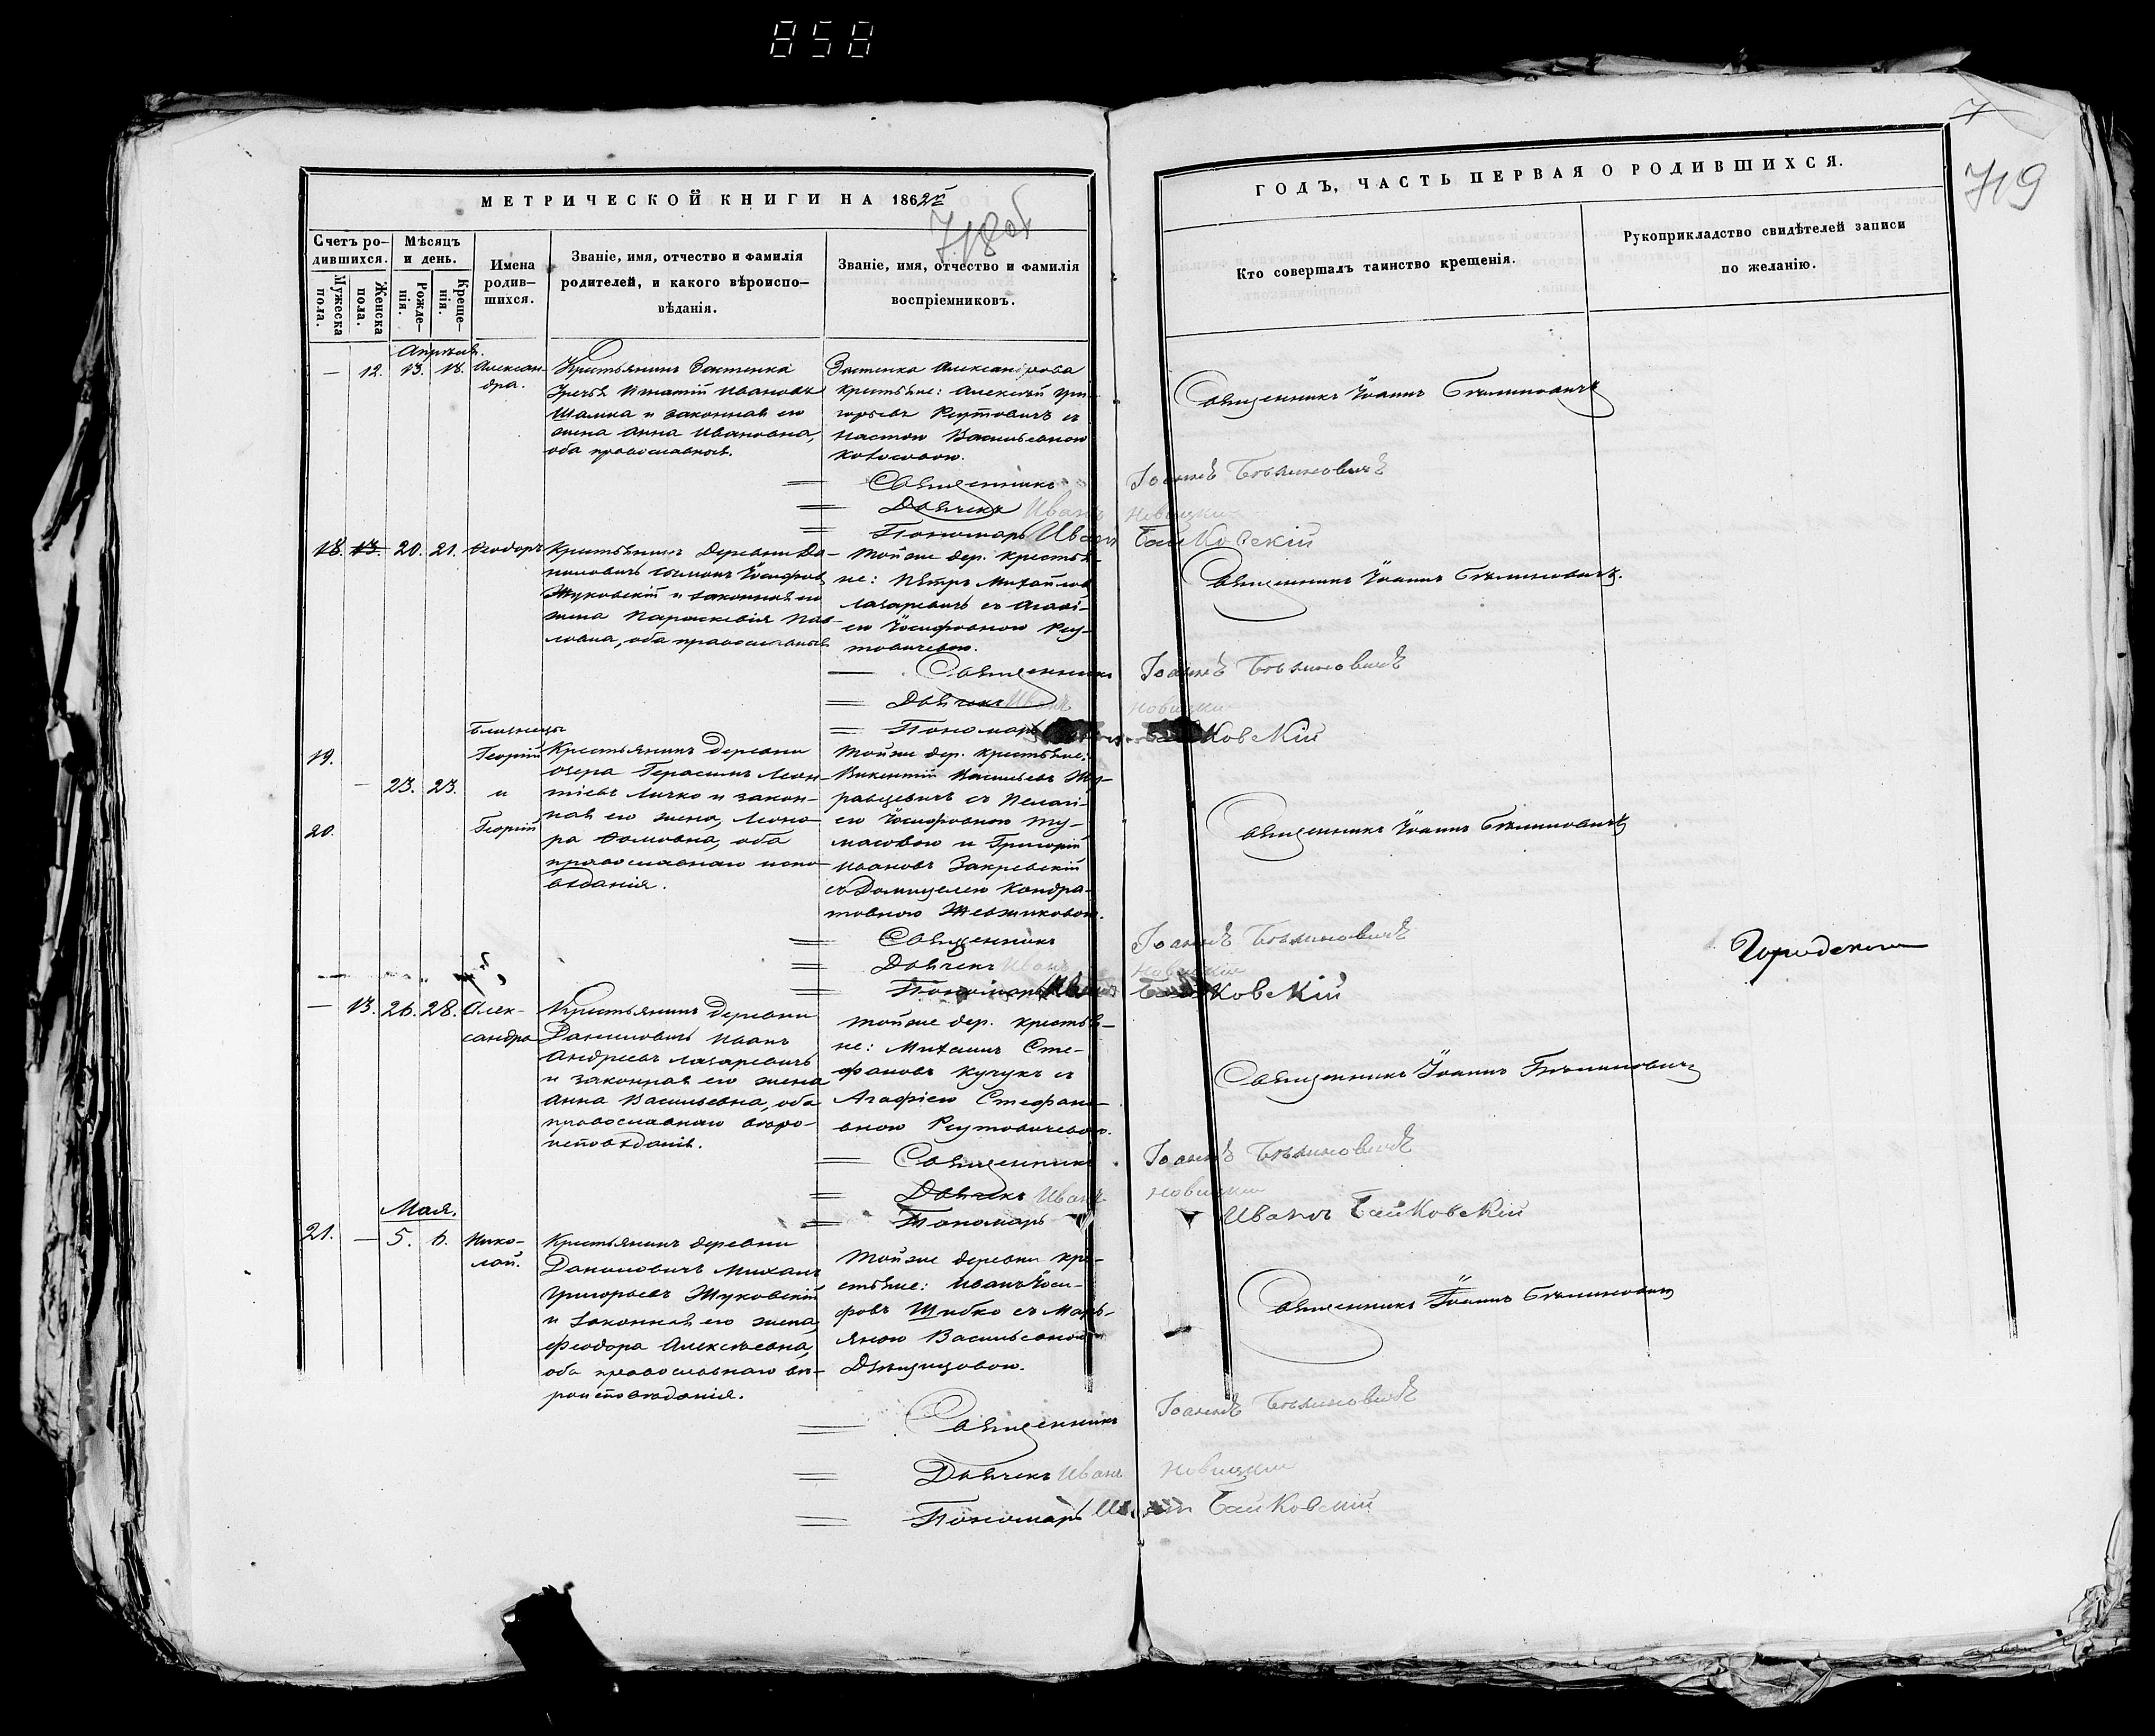 858
7
719
МЕТРИЧЕСКОЙ КНИГИ НА 1862й
718об
ГОДЪ, ЧАСТЬ ПЕРВАЯ О РОДИВШИХСЯ.
Счетъ ро-
дившихся.
Мужеска
пола.
Женска
пола.
Мѣсяцъ
и день.
Рожде-
нія.
Креще-
нія.
Имена
родив-
шихся.
Званіе, имя, отчество и фамилія
родителей, и какого вѣроиспо-
вѣданія.
Званіе, имя, отчество и фамилія
воспріемниковъ.
Кто совершалъ таинство крещенія.
Рукоприкладство свидѣтелей записи
по желанію.
Апрѣль.
— 12. 13. 18. Алексан-
дра.
Крестьянинъ Застенка
Игнатій Ивановъ
и законная его
жена Анна Ивановна,
оба православные.
Застенка
крестьяне: Алексѣй Гри-
горьевъ Реутовичъ съ
Настою Васильевною
Священникъ Іоаннъ
Священникъ Іоаннъ
Дьячекъ Иванъ Новицкій
Пономарь Иванъ Байковскій
18. 13. 20. 21. Ѳеодоръ
Крестьянинъ деревни Да-
ниловичъ Іосифовъ
Жуковскій и законная его
жена Параскевія Пав-
ловна, оба православные
Тойже дер. крестья-
не: Петръ Михайловъ
Лазаревичъ съ
Іосифовною Реу-
товичевою.
Священникъ Іоаннъ
Священникъ Іоаннъ
Дьячекъ Иванъ Новицкій
Пономарь Байковскій
Близнецы
19. Георгій
— 23. 23. и
20. Георгій
Крестьянинъ деревни
Озера Герасимъ Леон-
тіевъ Личко и закон-
ная его жена, Леоно-
ра Ѳомовна, оба
православнаго испо-
вѣданія.
Тойже дер. крестьяне:
Викентій Васильевъ Жу-
равцевичъ съ Пелагі-
ею Іосифовною Ту-
масовою и Григорій
Ивановъ Закревскій
съ Домицелею Кондра-
товною
Священникъ Іоаннъ
Священникъ Іоаннъ
Дьячекъ Иванъ Новицкій
Пономарь Иванъ Байковскій
— 13. 26. 28. Алек-
сандра
Крестьянинъ деревни
Даниловичъ Иванъ
Андреевъ Лазаревичъ
и законная его жена
Анна Васильевна, оба
православнаго вѣро-
исповѣданія.
Тойже дер. крестья-
не: Михаилъ Сте-
фановъ Кучукъ съ
Агафіею Стефано-
вною Реутовичевою.
Священникъ Іоаннъ
Священникъ Іоаннъ
Дьячекъ Иванъ Новицкій
Пономарь Иванъ Байковскій
Мая.
21. — 5. 6. Нико-
лай.
Крестьянинъ деревни
Даниловичъ Михаилъ
Григорьевъ Жуковскій
и законная его жена,
Феодора Алексѣевна,
оба православнаго вѣ-
роисповѣданія.
Тойже деревни кре-
стьяне: Иванъ Іоси-
фовъ Шибко съ Марь-
яною Васильевною
Священникъ Іоаннъ
Священникъ Іоаннъ
Дьячекъ Иванъ Новицкій
Пономарь Иванъ Байковскій